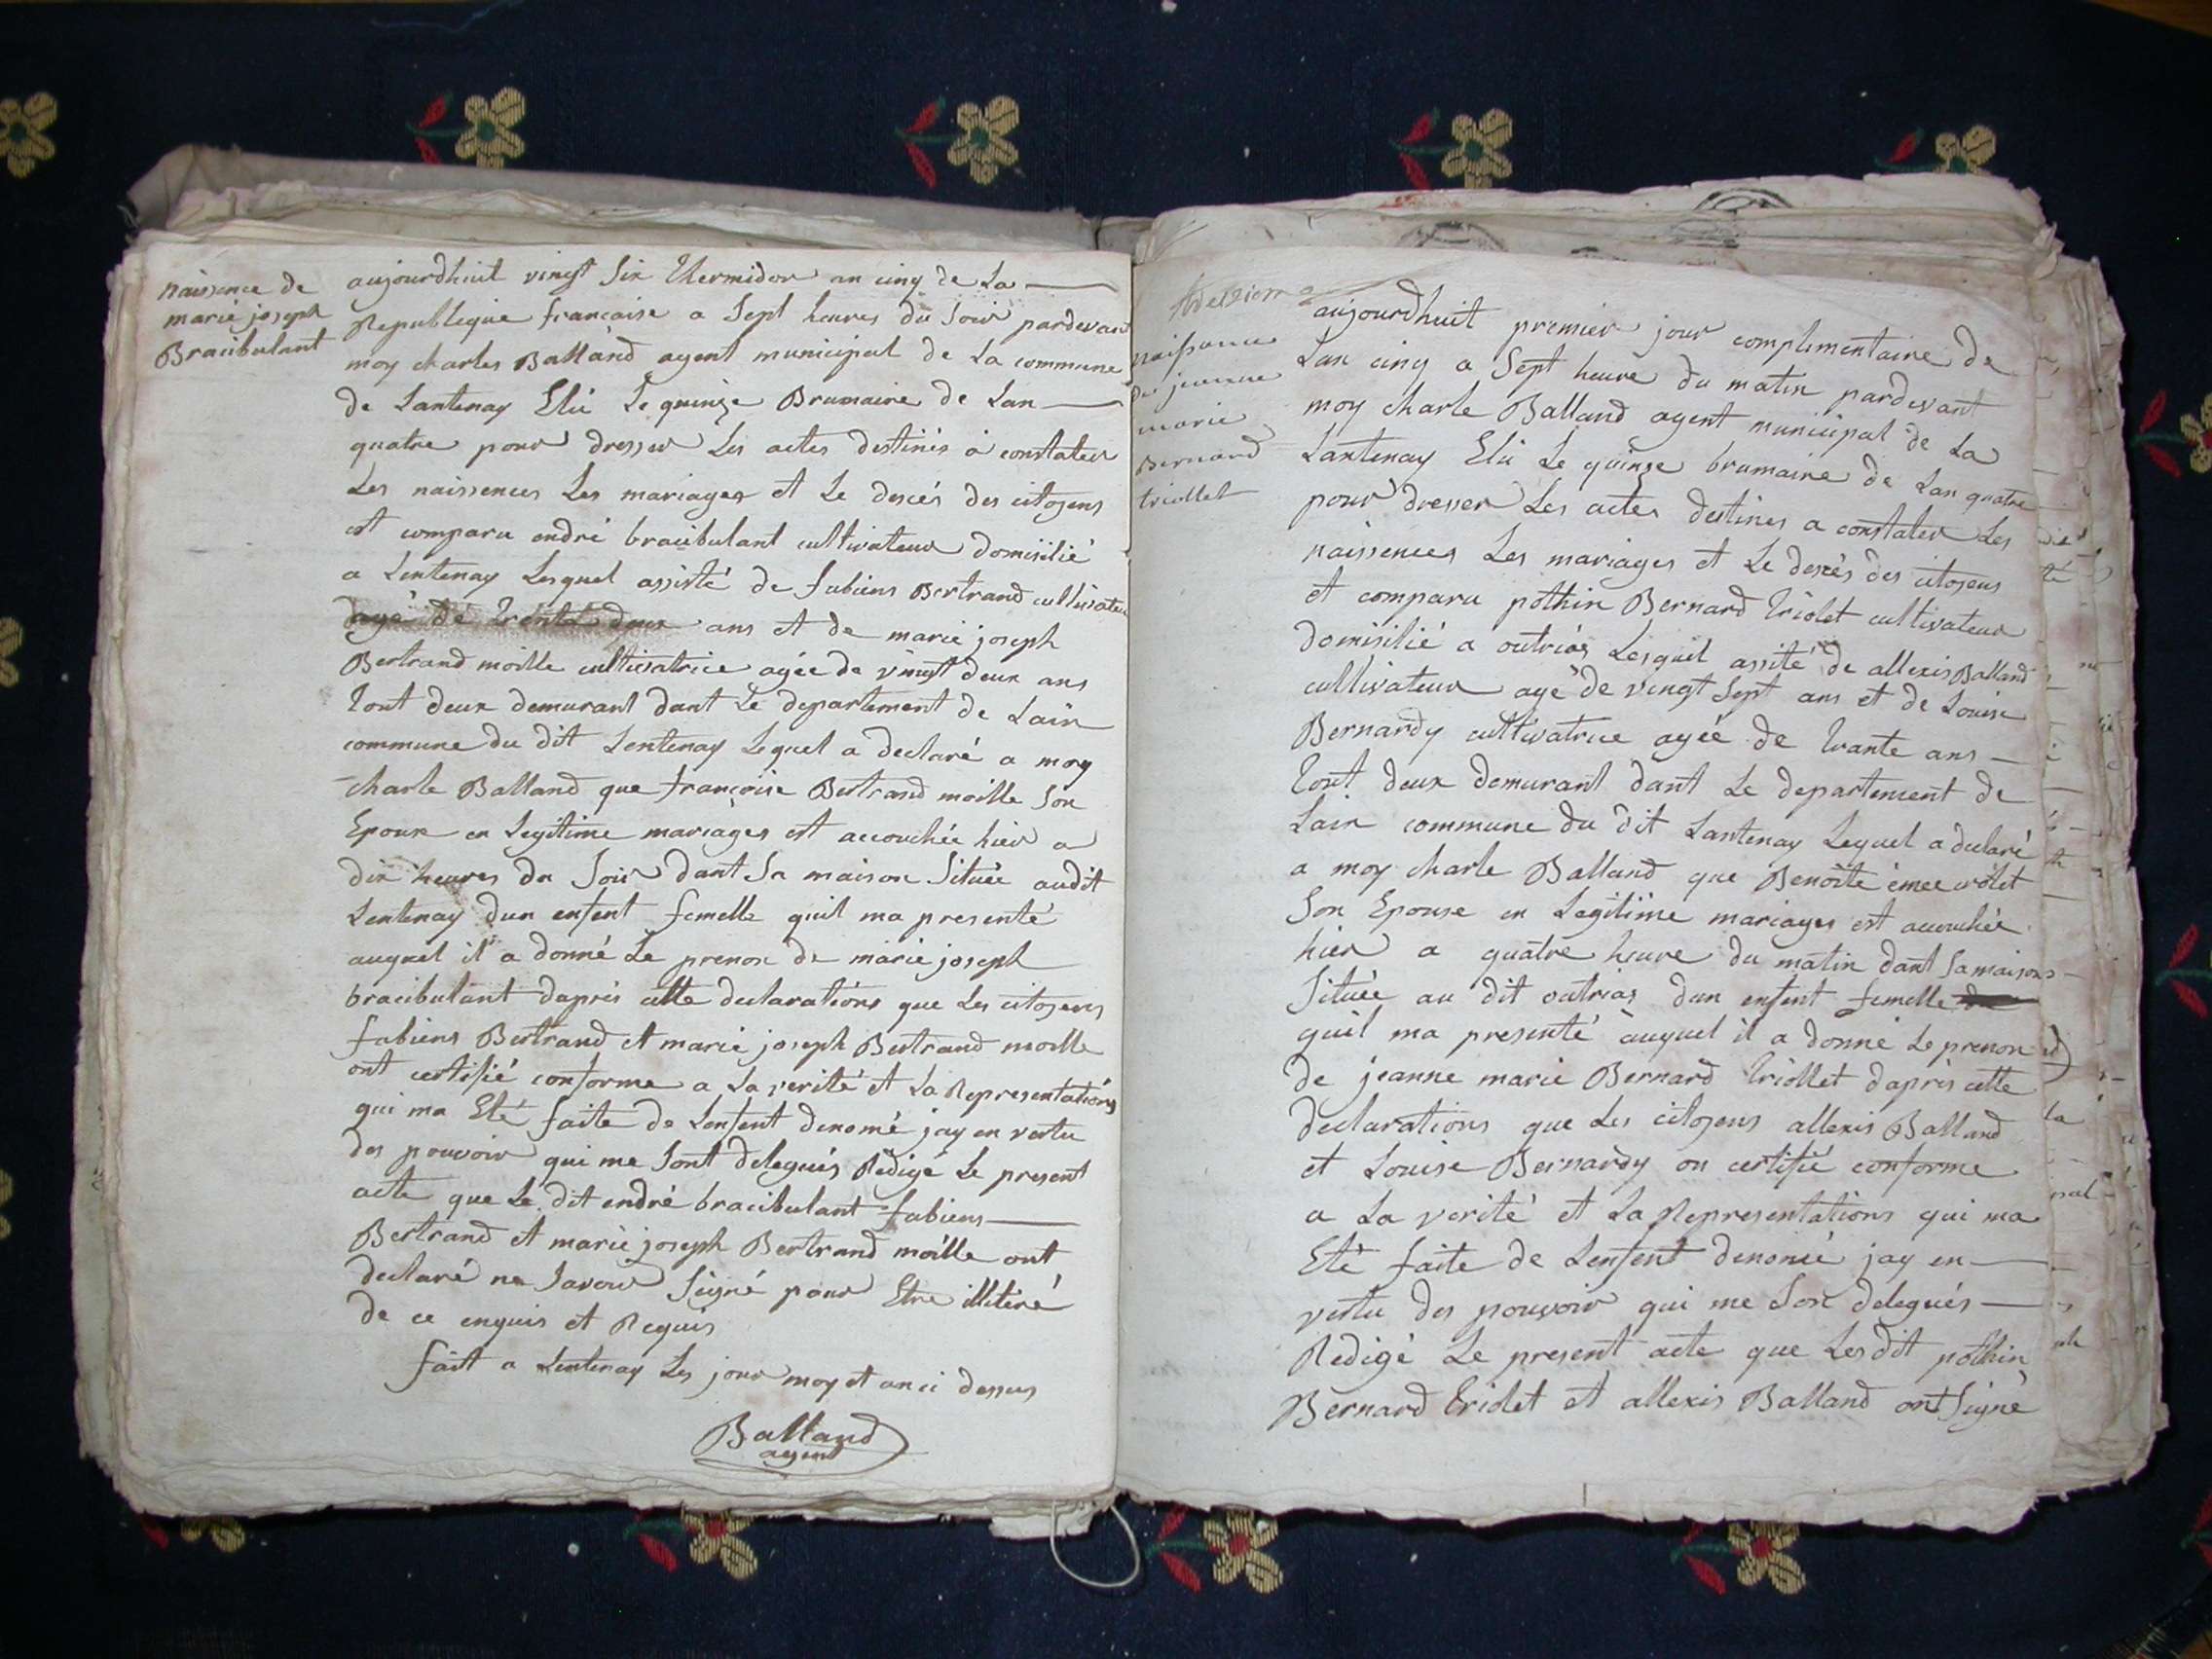 naissence de
marie joseph
Bracibulant
aujourdhuit vingt six thermidor an cinq de La
Republique francaise a Sept heures du Soir pardevant
moy charles Balland agent municipal de La commune
de Lantenay Elü Le quinze Brumaire de Lan
quatre pour dresser Les actes destinés a constater
Les naissences Les mariages et Le descés des citoyens
est comparu endré bracibulant cultivateur domisilié
a Lentenay Lesquel assisté de fabiens Bertrand cultivateur
agé de trente deux ans et de marie joseph
Bertrand moille cultivatrice agée de vingt deux ans
tout deux demurant dant Le departement de Lain
commune du dit Lentenay Lequel a declaré a moy
charle Balland que francoise Bertrand moille Son
Epoux en Legitime mariages est accouchée hier a
dix heures du Soir dant Sa maison Située audit
Lentenay dun enfent femelle quil ma presenté
auquel il a donné Le prenon de marie joseph
bracibulant daprés cette declarations que Les citoyens
fabiens Bertrand et marie joseph Bertrand moille
ont certifié conforme a La verité et La Representations
qui ma Eté faite de Lenfent denomé jay en vertu
des pouvoir qui me Sont delegués Rédigé Le present
acte que Le dit endré bracibulant fabiens
Bertrand et marie joseph Bertrand moille ont
declaré ne Savoir Signé pour Etre illitiré
de ce enquis et Requis
fait a Lentenay Les jour moy et an ci dessus
Balland
agent
naissance
de jeanne
marie
Bernard
triollet
aujourdhuit premier jour complimentaire de
Lan cinq a Sept heure du matin pardevant
moy charle Balland agent municipal de La
Lantenay Elü Le quinze brumaire de Lan quatre
pour dresser Les actes destines a constater Les
naissences Les mariages et Le descés des citoyens
et comparu pothin Bernard triolet cultivateur
domisilié a outrias Lesquel assité de allexis Balland
cultivateur agé de vingt Sept ans et de Louise
Bernardy cultivatrice agée de trante ans
tout deux demurant dant Le departement de
Lain commune du dit Lantenay Lequel a declaré
a moy charle Balland que Benoite
Son Epouse en Legitime mariages est accouchée
hier a quatre heure du matin dant Sa maisons
Située au dit outrias dun enfent femelle
quil ma presenté auquel il a donné Le prenon
de jeanne marie Bernard triollet daprés cette
declarations que Les citoyens allexis Balland
et Louise Bernardy on certifié conforme
a La verité et La Representations qui ma
Eté faite de Lenfent denomé jay en
vertu des pouvoir qui me Son delegués
Redigé Le present acte que Lesdit pothin
Bernard triolet et allexis Balland ont Signé